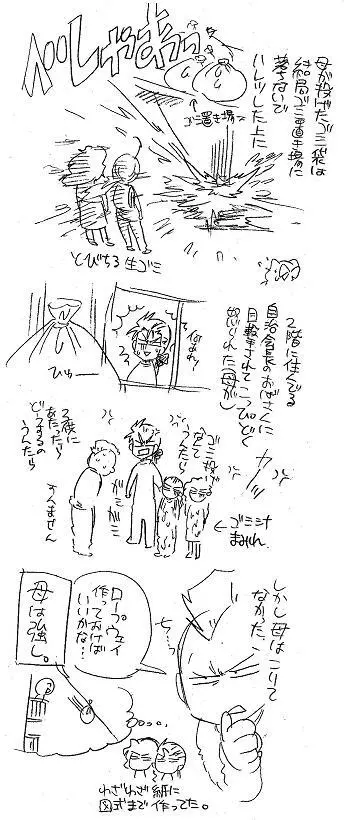 べしゃあっ
母が投げたゴミ袋は
結局ゴミ置き場に
落ちないで
ハレツした上に
ゴミ置き場
とびちる生ゴミ
2階に住んでる
自治会長のおばさんに
目撃されてこっぴどく
怒られた(母が)
ひゅー
ガミ
ガミ
すんません
ゴミ汁
まみれ
しかし母はこりて
なかった、
チッ…
ロープウェイ
作っておけば
いいかな…
母は強し。
わざわざ紙に
図式まで作ってた。